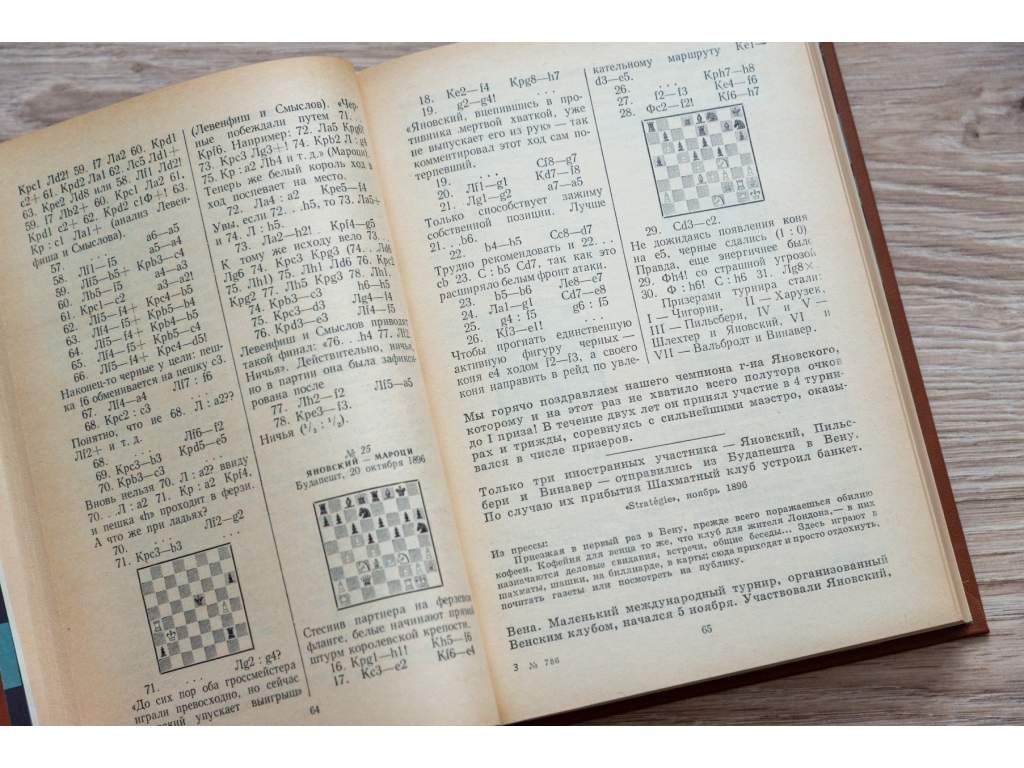 Крс1 Лd2! 59. f7 Ла2 60. Крd1
с2+ 61. Крd2 Ла1 62. Лс5 Лd1+
63. Кре2 Лd8 или 58. Лf1 Лd2!
59. f7 Лb2+ 60. Крс1 Ла2 61.
Крd1 с2+ 62. Крd2 с1Ф+! 63.
Кр : с1 Ла1+ (анализ Левен-
фиша и Смыслова).
57. . . . а6—а5
58. Лf1—f5 а5—а4
59. Лf5—b5+ Крb3—с4
60. Лb5—f5 а4—а3
61. Крс1—с2 а3—а2!
62. Лf5—f4+ Крс4—b5
63. Лf4—f5+ Крb5—b4
64. Лf5—f4+ Крb4—b5
65. Лf4—f5+ Крb5—с4
66. Лf5—f4+ Крс4—d5!
Наконец-то черные у цели: пеш-
ка f6 обменивается на пешку с3.
67. Лf4—а4 Лf7 : f6
68. Крс2 : с3
Понятно, что не 68. Л : а2??
Лf2+ и т. д.
68. . . . Лf6—f2
69. Крс3—b3 Крd5—е5
70. Крb3—с3
Вновь нельзя 70. Л : а2? ввиду
70. . .Л : а2 71. Кр : а2 Крf4,
и пешка «h» проходит в ферзи.
А что же при ладьях?
70. . . . Лf2—g2
71. Крс3—b3 . . .
71. . . . Лg2 : g4?
«До сих пор оба гроссмейстера
играли превосходно, но сейчас
упускает выигрыш»
64
(Левенфиш и Смыслов). «Чер-
ные побеждали путем 71. . .
Крf6. Например: 72. Ла5 Крg6
73. Крс3 Лg3+! 74. Крb2 Л : g4
75. Кр : а2 Лb4 и т. д.» (Мароци).
Теперь же белый король ход в
ход поспевает на место.
72. Ла4 : а2 Кре5—f4
Увы, если 72. . .h5, то 73. Ла5+
и 74. Л : h5.
73. Ла2—h2! Крf4—g5
К тому же исходу вело 73. . .
Лg6 74. Крс3 Крg5 (74. . .Лd6
75. Лh1) 75. Лh1 Лd6 76. Крс
Крg2 77. Лh5 Крg3 78. Лh1.
74. Крb3—с3 h6—h5
75. Крс3—d3 Лg4—f4
76. Крd3—е3 Лf4—f5
Левенфиш и Смыслов приводят
такой финал: «76. . .h4 77. Лf2
Ничья». Действительно, ничья,
но в партии она была зафикси-
рована после
77. Лh2—f2 Лf5—а5
78. Кре3—f3.
Ничья (¹/₂ : ¹/₂).
№ 25
ЯНОВСКИЙ — МАРОЦИ
Будапешт, 20 октября 1896
Стеснив партнера на ферзевом
фланге, белые начинают прямой
штурм королевской крепости.
16. Крg1—h1! Кh5—f6
17. Кс3—е2 Кf6—е4
18. Ке2—f4 Крg8—h7
19. g2—g4! . . .
«Яновский, вцепившись в про-
тивника мертвой хваткой, уже
не выпускает его из рук» — так
комментировал этот ход сам по-
терпевший.
19. . . . Сf8—g7
20. Лf1—g1 Кd7—f8
21. Лg1—g2 а7—а5
Только способствует зажиму
собственной позиции. Лучше
21. . .b6.
22. b4—b5 Сс8—d7
Трудно рекомендовать и 22. . .
сb 23. С : b5 Сd7, так как это
расширяло белым фронт атаки.
23. b5—b6 Ле8—е7
24. Ла1—g1 Сd7—е8
25. g4 : f5 g6 : f5
26. Кf3—е1! . . .
Чтобы прогнать единственную
активную фигуру черных —
коня е4 ходом f2—f3, а своего
коня направить в рейд по увле-
кательному маршруту Ке1—
d3—е5.
26. . . . Крh7—h8
27. f2—f3 Ке4—f6
28. Фс2—f2! Кf6—h7
29. Сd3—с2.
Не дожидаясь появления коня
на е5, черные сдались (1 : 0).
Правда, еще энергичнее было
29. Фh4! со страшной угрозой
30. Ф : h6! С : h6 31. Лg8×.
Призерами турнира стали:
I — Чигорин, II — Харузек,
III — Пильсбери, IV и V —
Шлехтер и Яновский, VI и
VII — Вальбродт и Винавер.
Мы горячо поздравляем нашего чемпиона г-на Яновского,
которому и на этот раз не хватило всего полутора очков
до I приза! В течение двух лет он принял участие в 4 турни-
рах и трижды, соревнуясь с сильнейшими маэстро, оказы-
вался в числе призеров.
Только три иностранных участника — Яновский, Пильс-
бери и Винавер — отправились из Будапешта в Вену.
По случаю их прибытия Шахматный клуб устроил банкет.
«Stratégie», ноябрь 1896
Из прессы:
Приезжая в первый раз в Вену, прежде всего поражаешься обилию
кофеен. Кофейня для венца то же, что клуб для жителя Лондона,— в них
назначаются деловые свидания, встречи, общие беседы... Здесь играют в
шахматы, шашки, на биллиарде, в карты; сюда приходят и просто отдохнуть,
почитать газеты или посмотреть на публику.
Вена. Маленький международный турнир, организованный
Венским клубом, начался 5 ноября. Участвовали Яновский,
65
3 № 786